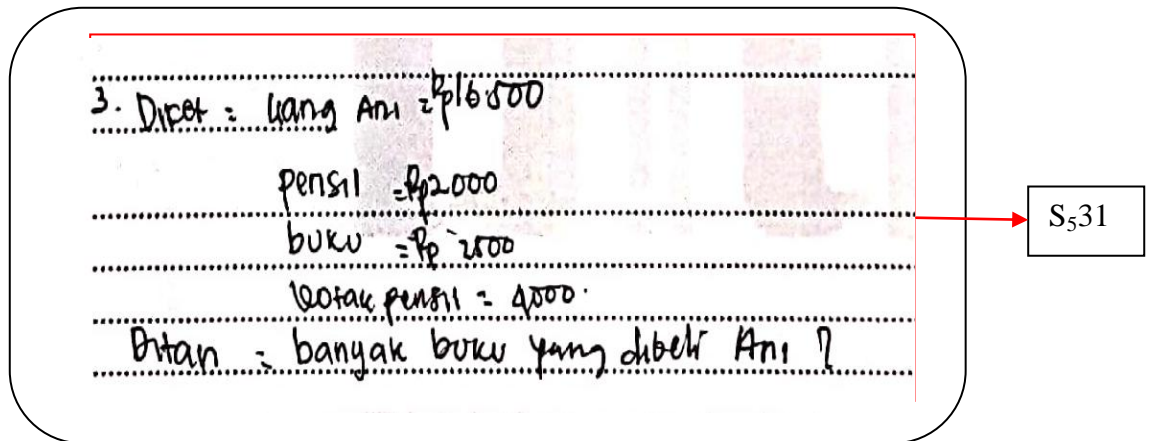 3. Diket = Uang Ani = Rp16.500
pensil = Rp2000
buku = Rp 2500
kotak pensil = 4000.
Ditan = banyak buku yang dibeli Ani ?
S₅31